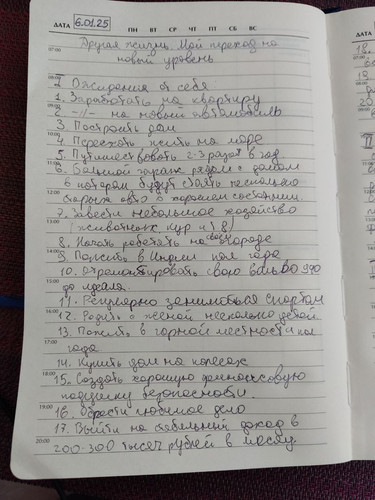 ДАТА 6.01.25 ПН ВТ СР ЧТ ПТ СБ ВС
ДАТА
07:00
Другая жизнь. Мой переход на
новый уровень
08:00
Ожидания от себя
1. Заработать на квартиру
09:00
2. -//- на новый автомобиль
3. Построить дом
10:00
4. Переехать жить на море
5. Путешествовать 2-3 раза в год
11:00
6. Большой гараж рядом с домом
в котором будут стоять несколько
12:00
старых авто в хорошем состоянии.
7. Завести небольшое хозяйство
13:00
(животных, кур и
8. Начать работать на своём огороде
14:00
9. Пожить в Индии пол года
10. Отремонтировать свою вольво 940
до идеала.
15:00
11. Регулярно заниматься спортом
16:00
12. Родить с женой несколько детей
13. Пожить в горной местности пол
17:00
года
14. Купить дом на колесах
18:00
15. Создать хорошую финансовую
подушку безопасности.
19:00
16. Обрести любимое дело
17. Выйти на стабильный доход в
20:00
200-300 тысяч рублей в месяц